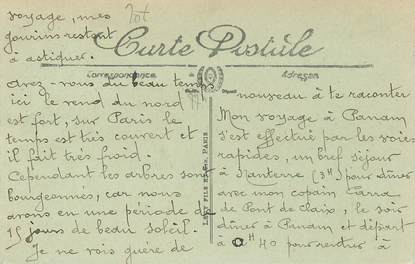 voyage, mes
gourins restant
à astiquer.
Avez-vous du beau temps
ici le vend du nord
est fort, sur Paris le
temps est très couvert et
il fait très froid.
Cependant les arbres sont
bourgeonnés, car nous
avons eu une période de
15 jours de beau soleil.
Je ne vois guère de
Carte Postale
Correspondance
Adresse
LEVY FILS ET Cie, PARIS
nouveau à te raconter
Mon voyage à Panam
s'est effectué par les voies
rapides, un bref séjour
à Nanterre (3H) pour dîner
avec mon copain
de Pont de Claix, le soir
dîner à Panam et départ
à 0H40 pour rentrer à